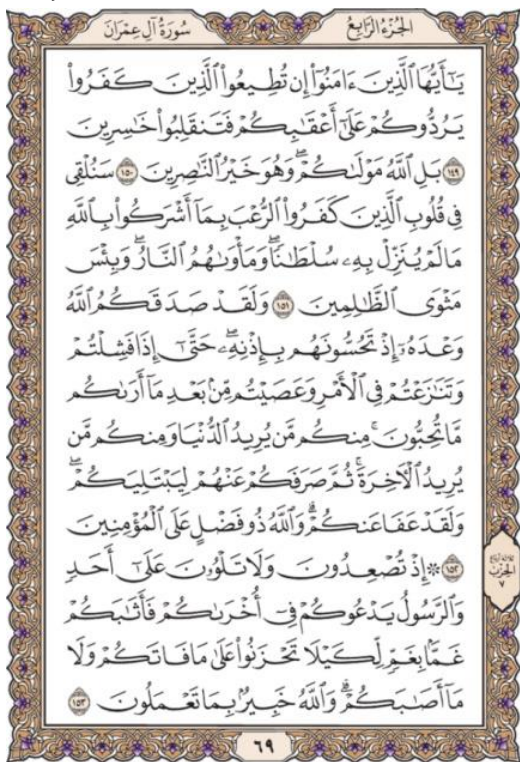 الجُزْءُ الرَّابِعُ
سُورَةُ آلِ عِمْرَانَ
يَـٰٓأَيُّهَا ٱلَّذِينَ ءَامَنُوٓا۟ إِن تُطِيعُوا۟ ٱلَّذِينَ كَفَرُوا۟
يَرُدُّوكُمْ عَلَىٰٓ أَعْقَـٰبِكُمْ فَتَنقَلِبُوا۟ خَـٰسِرِينَ
١٤٩ بَلِ ٱللَّهُ مَوْلَىٰكُمْ ۖ وَهُوَ خَيْرُ ٱلنَّـٰصِرِينَ ١٥٠ سَنُلْقِى
فِى قُلُوبِ ٱلَّذِينَ كَفَرُوا۟ ٱلرُّعْبَ بِمَآ أَشْرَكُوا۟ بِٱللَّهِ
مَا لَمْ يُنَزِّلْ بِهِۦ سُلْطَـٰنًا ۖ وَمَأْوَىٰهُمُ ٱلنَّارُ ۚ وَبِئْسَ
مَثْوَى ٱلظَّـٰلِمِينَ ١٥١ وَلَقَدْ صَدَقَكُمُ ٱللَّهُ
وَعْدَهُۥٓ إِذْ تَحُسُّونَهُم بِإِذْنِهِۦ ۖ حَتَّىٰٓ إِذَا فَشِلْتُمْ
وَتَنَـٰزَعْتُمْ فِى ٱلْأَمْرِ وَعَصَيْتُم مِّنۢ بَعْدِ مَآ أَرَىٰكُم
مَّا تُحِبُّونَ ۚ مِنكُم مَّن يُرِيدُ ٱلدُّنْيَا وَمِنكُم مَّن
يُرِيدُ ٱلْـَٔاخِرَةَ ۚ ثُمَّ صَرَفَكُمْ عَنْهُمْ لِيَبْتَلِيَكُمْ ۖ
وَلَقَدْ عَفَا عَنكُمْ ۗ وَٱللَّهُ ذُو فَضْلٍ عَلَى ٱلْمُؤْمِنِينَ
١٥٢ ۞ إِذْ تُصْعِدُونَ وَلَا تَلْوُۥنَ عَلَىٰٓ أَحَدٍ
وَٱلرَّسُولُ يَدْعُوكُمْ فِىٓ أُخْرَىٰكُمْ فَأَثَـٰبَكُمْ
غَمًّۢا بِغَمٍّ لِّكَيْلَا تَحْزَنُوا۟ عَلَىٰ مَا فَاتَكُمْ وَلَا
مَآ أَصَـٰبَكُمْ ۗ وَٱللَّهُ خَبِيرٌۢ بِمَا تَعْمَلُونَ ١٥٣
ثلاثة أرباع
الحِزْب
٧
٦٩